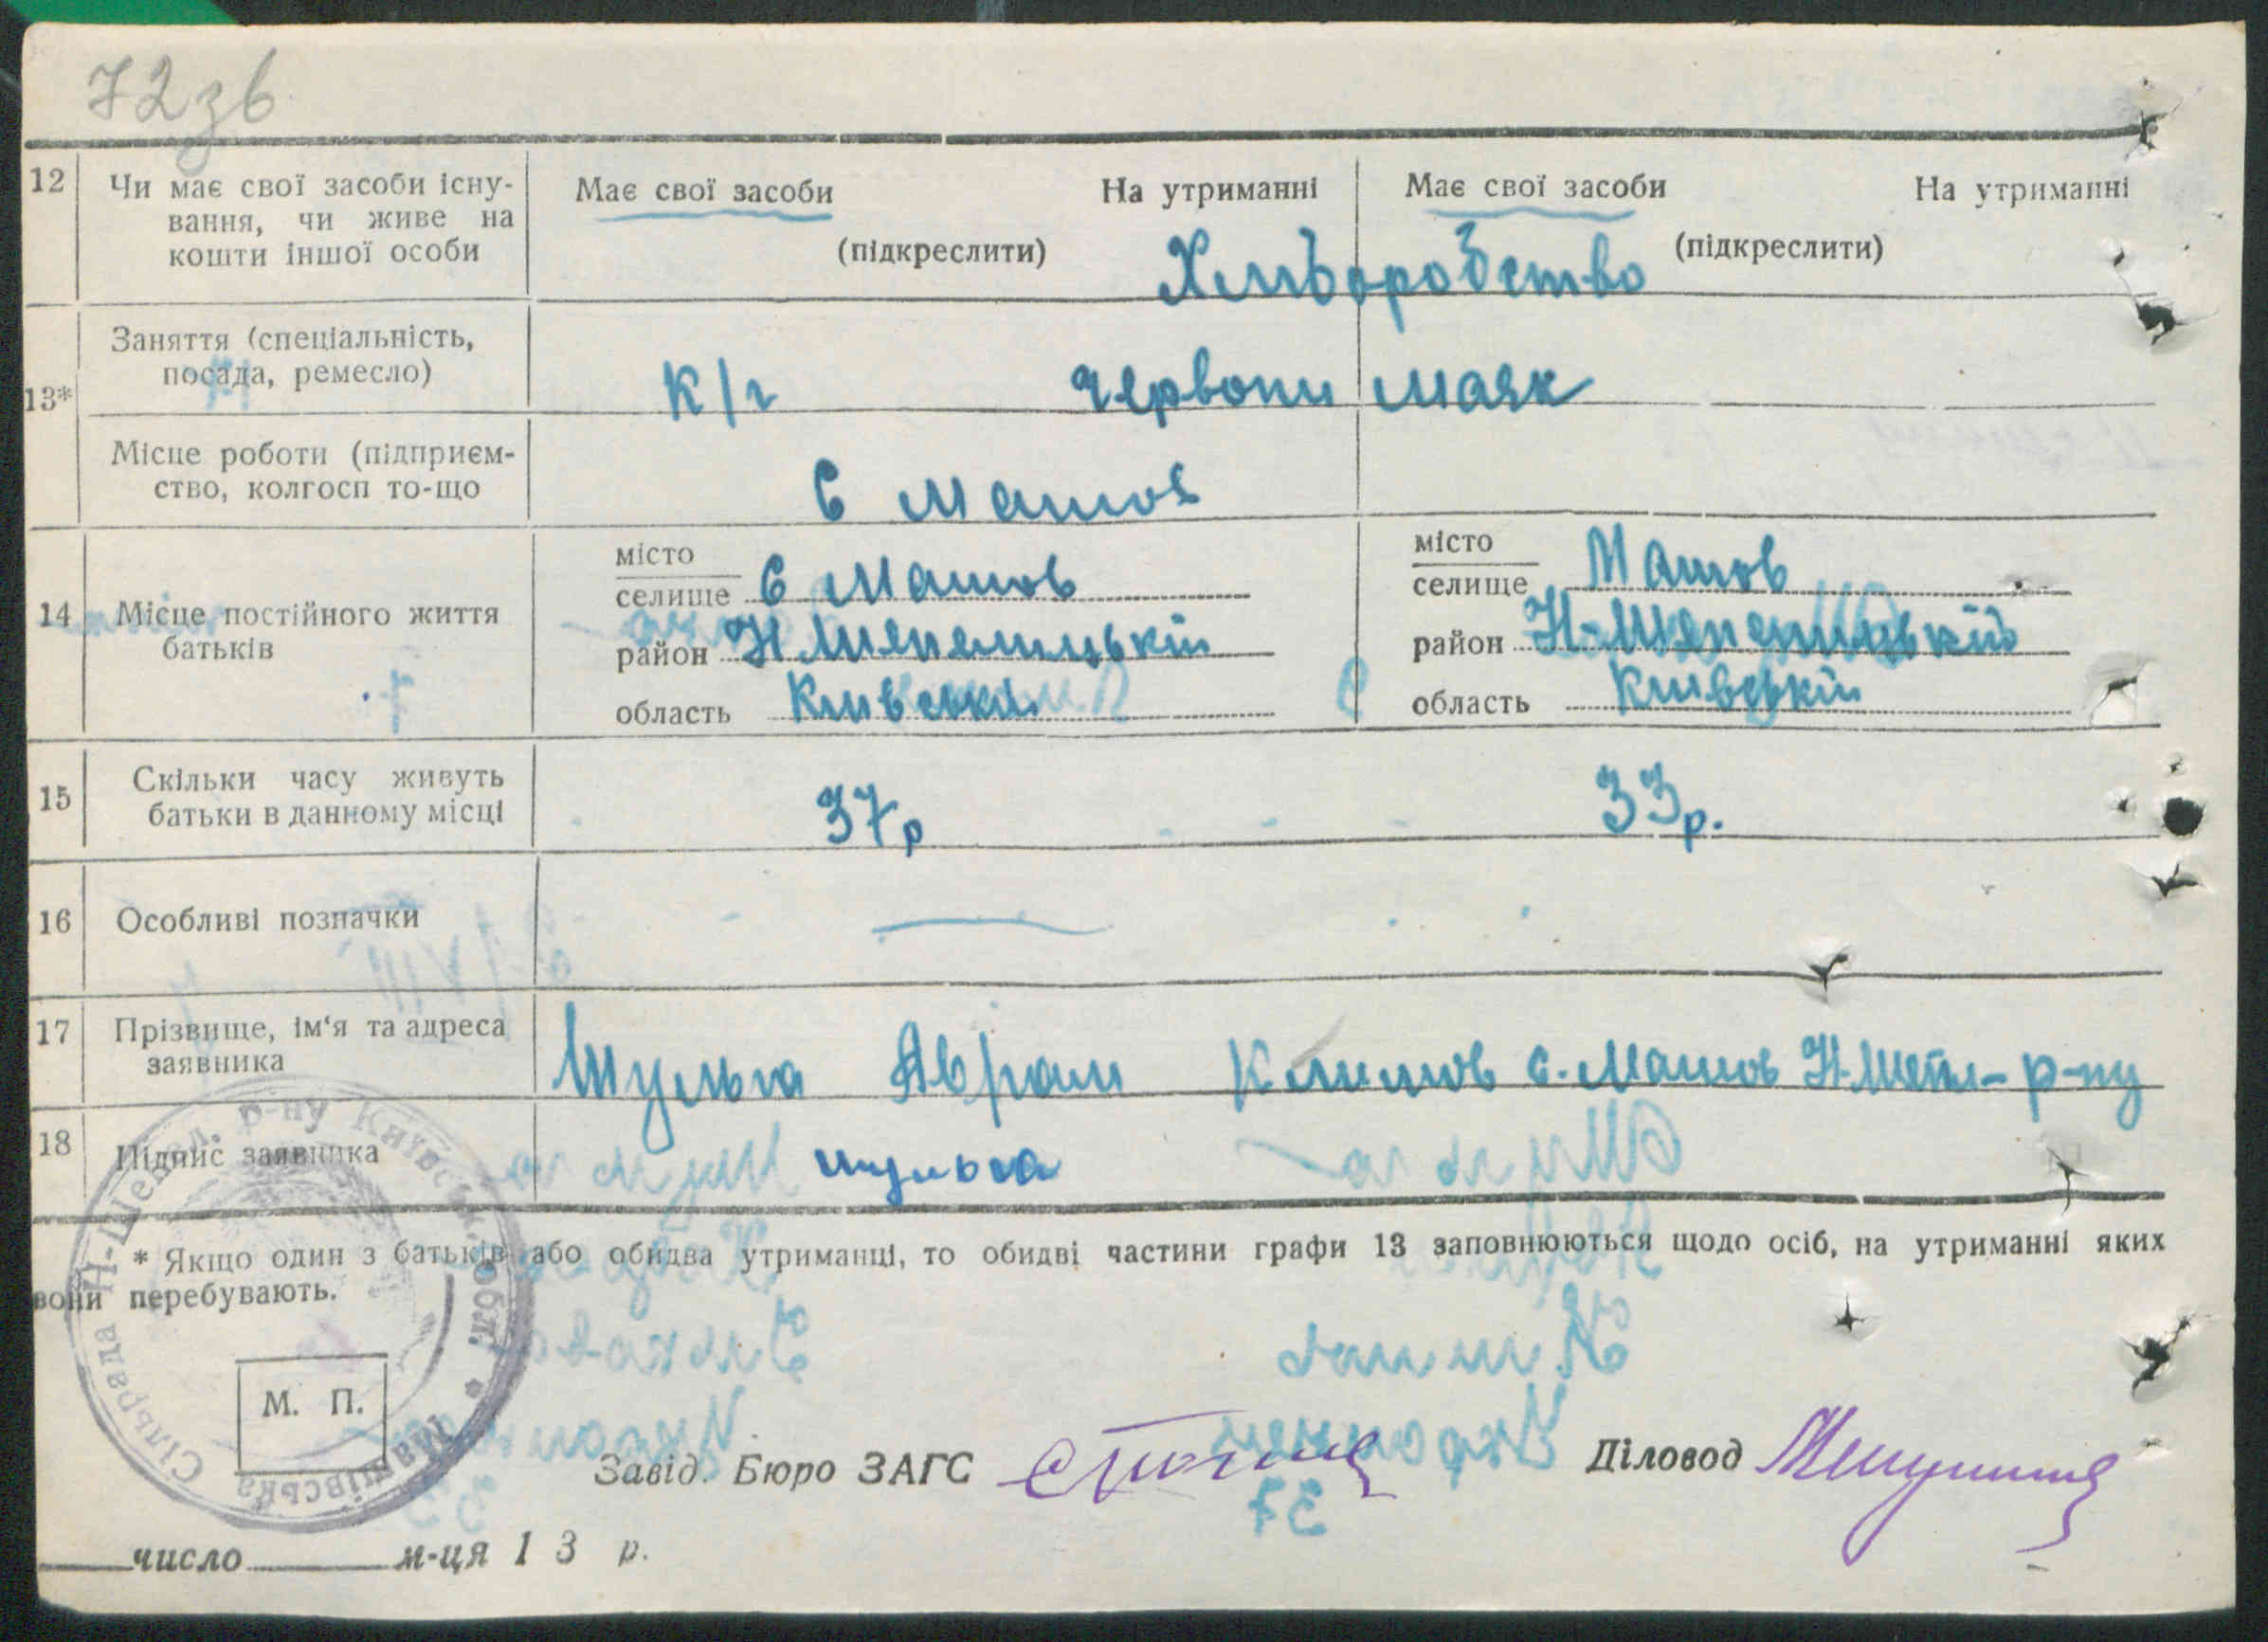 72зв
12 Чи має свої засоби існу- Має свої засоби На утриманні Має свої засоби На утриманні
вання, чи живе на
кошти іншої особи (підкреслити) (підкреслити)
Хліборобство
Заняття (спеціальність,
13* посада, ремесло) к/г Червони маяк
Місце роботи (підприєм-
ство, колгосп то-що с Машов
14 Місце постійного життя батьків
місто місто
селище с Машов селище Машов
район Н Шепелицький район Н-Шепелицький
область Київській область Київській
15 Скільки часу живуть
батьки в данному місці 37р 33р.
16 Особливі позначки —
17 Прізвище, ім‘я та адреса
заявника Шульга Аврам Климов с. Машов Н-Шепл- р-ну
18 Підпис заявника шульга
* Якщо один з батьків або обидва утриманці, то обидві частини графи 13 заповнюються щодо осіб, на утриманні яких
вони перебувають.
Машівська Сільрада Н-Шепел. р-ну Київськ. обл.
М. П.
Завід. Бюро ЗАГС Діловод
число м-ця 1 3 р.